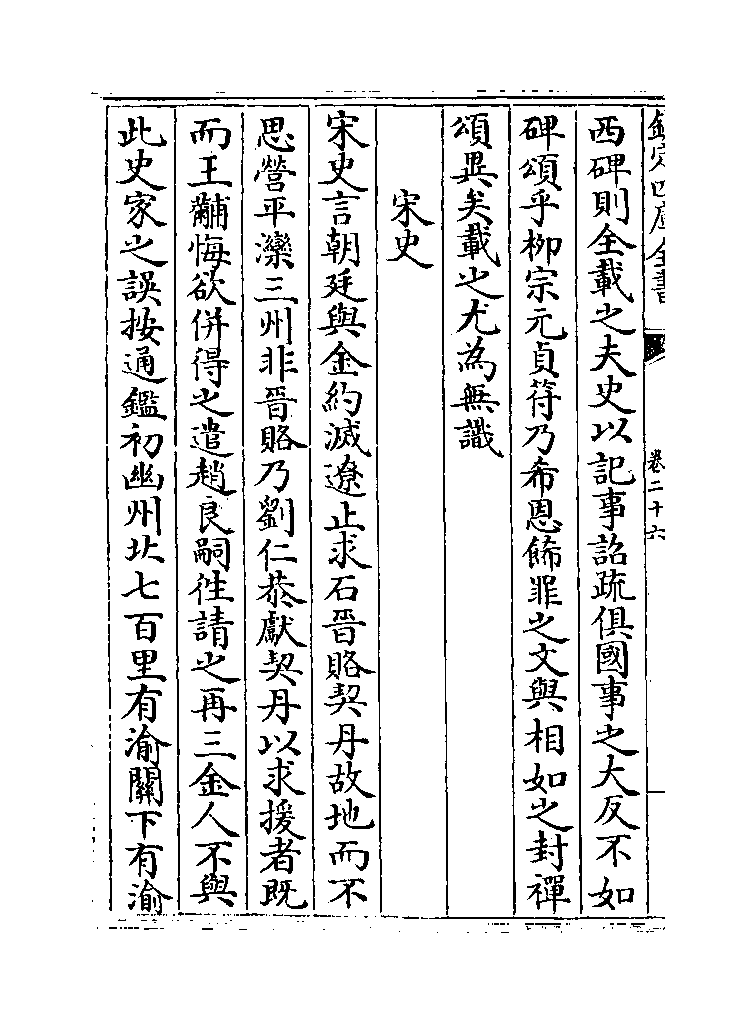 欽定四庫全書
卷二十六
西碑則全載之夫史以記事詔疏俱國事之大反不如
碑頌乎柳宗元貞符乃希恩飾罪之文與相如之封禪
頌異矣載之尤為無識
宋史
宋史言朝廷與金約滅遼止求石晉賂契丹故地而不
思營平灤三州非晉賂乃劉仁恭獻契丹以求援者既
而王黼悔欲併得之遣趙良嗣往請之再三金人不與
此史家之誤按通鑑初幽州北七百里有渝關下有渝